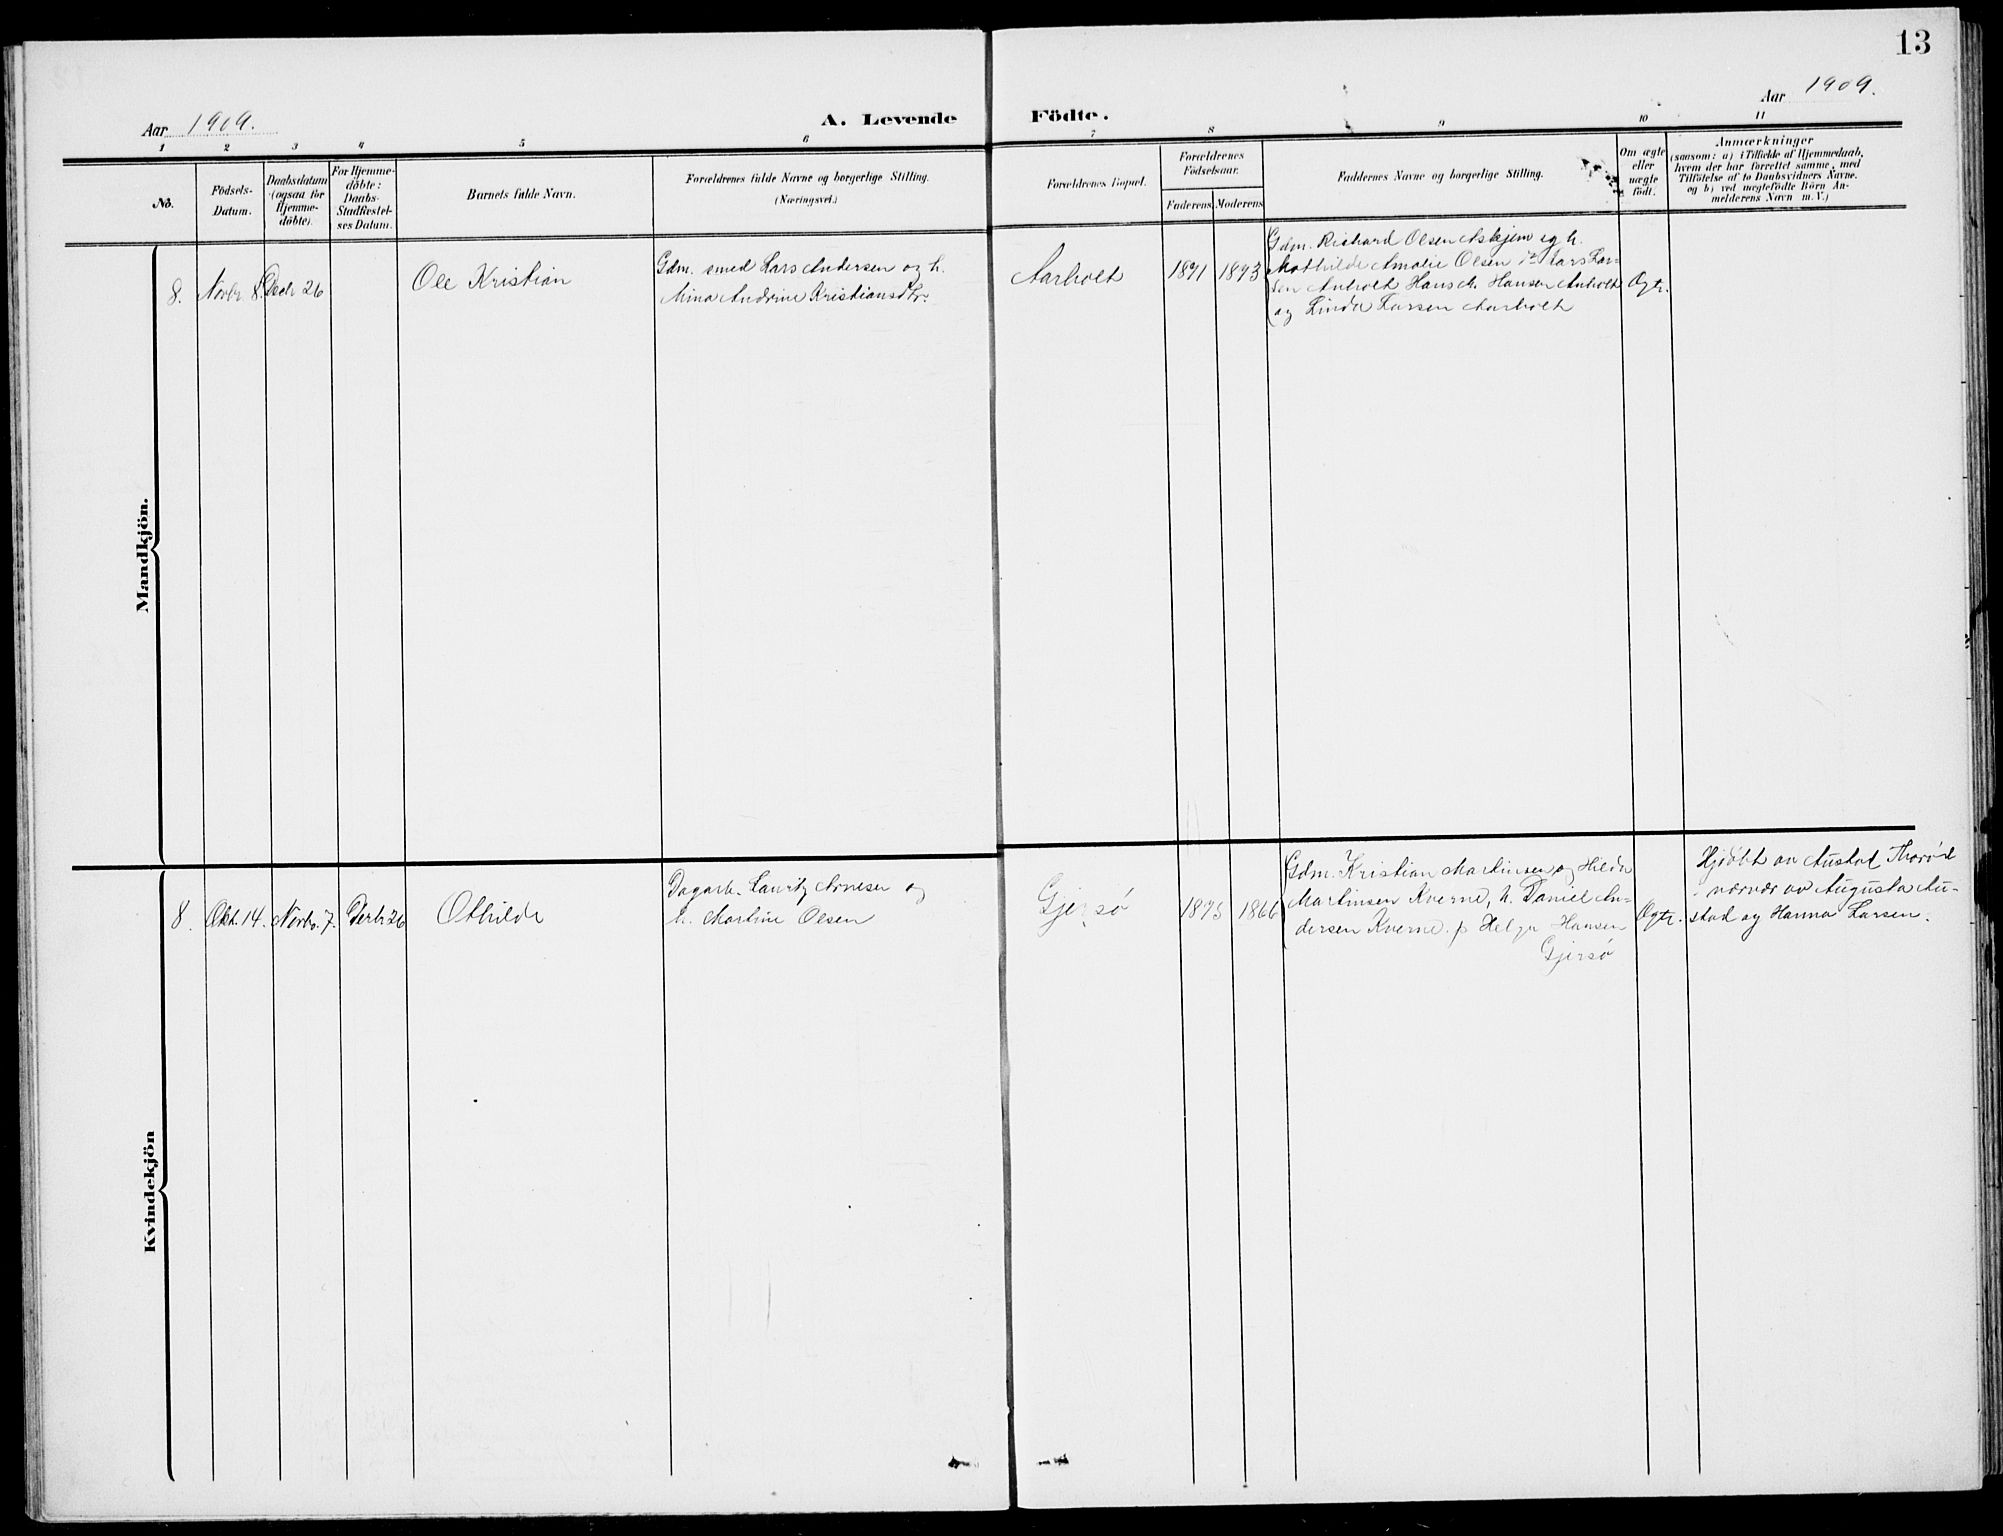 13
Aar 1909.
A. Levende Födte.
Aar 1909.
1 2 3 4 5 6 7 8 9 10 11
No.
Födsels-
Datum.
Daabsdatum
(ogsaa for
Hjemme-
döbte).
For Hjemme-
döbte:
Daabs-
Stadfæstel-
ses Datum.
Barnets fulde Navn.
Forældrenes fulde Navne og borgerlige Stilling.
(Næringsvei.)
Forældrenes Bopæl.
Forældrenes
Födselsaar.
Faderens Moderens
Faddernes Navne og borgerlige Stilling.
Om ægte
eller
uægte
födt.
Anmærkninger
(saasom: a) i Tilfælde af Hjemmedaab,
hvem der har forrettet samme, med
Tilföielse af to Daabsvidners Navne.
og b) ved uægtefödte Börn An-
melderens Navn m. V.)
Mandkjön.
8.
Novbr 8.
Decbr 26
Ole Kristian
Gdm. smed Lars Andersen og h.
Mina Andrine Kristiansdtr.
Aarholt
1871
1873
Gdm. Richard Olsen Askjem og h.
Mathilde Amalie Olsen Lars Lar-
sen Anholt Hans M. Hansen Anholt
og Linda Larsen Aarholt
Ægte.
Kvindekjön
8.
Okt. 14.
Novbr. 7.
Decbr 26
Othilde
Dagarb. Lauritz Arnesen og
h. Martine Olsen
Gjersø
1875
1866
Gdm. Kristian Martinsen og Hilda
Martinsen Kverne, h. Daniel An-
dersen Kverne. p Helga Hansen
Gjersø
Ægte.
Hjdøbt av Austad Thorød
nærvær av Augusta Au-
stad og Hanna Larsen.